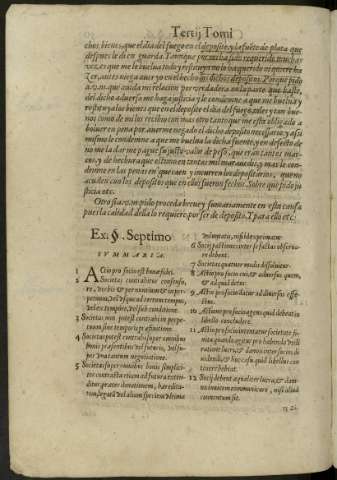 Tertij Tomi
chos bienes, que el dia del fuego en el deposite, y la fuẽte de plata que
despues le di en guarda. Y aunque por mi ha sido requerido muchas
vezes que me lo buelua todo y restituya no lo ha querido ni quiere ha
zer, antes niega auer yo en el hecho los dichos depositos. Porque pido
a v.m. que auida mi relacion por verdadera en la parte que baste,
del dicho aduerso me haga justicia y le condene a que me buelua y
restituya los bienes que en el deposite el dia del fuego,
nos como de mi los recibio con mas otro tanto que me està obligado a
boluer en pena por auerme negado el dicho deposito necessario: y assi
mismo le condemne a que me buelua la dicha fuente, y en defecto de
no me la dar me pague su justo valor de peso, que eran tantos mar-
cos, y de hechura que estimo en tantas mil marauedis, y mas le con-
demne en las penas en que caen e incurren los depositarios, que no
acuden con los depositos que en ellos fueron fechos. Sobre que pido ju
sticia etc.
Otro si a v.m. pido proceda breue y sumariamente en esta causa
pues la calidad della lo requiere por ser de deposito. Y para ello etc.
Ex. §. Septimo
SVMMARIA.
1 Actio pro socio est bonæ fidei.
2 Societas contrahitur consensu,
re, verbis & per nuncium & im per-
petuum, vel vsque ad certum tempus,
vel ex tempore, vel sub conditione.
3 Societas non potest contrahi in perpe-
tuum sine temporis præfinitione.
4 Societas potest contrahi super omnibus
bonis præsentibus vel futuris, vel su-
per vna tantum negotiatione.
5 Societas super omnibus bonis simplici-
ter contracta etiam ad futura exten-
ditur, præter donationem, hæredita-
tem, legatũ vel aliam speciem vltimæ
voluntatis, nisi id exprimatur.
6 Socij pactiones inter se factas obserua-
re debent.
7 Societas quatuor modis dissoluitur.
8 Actio pro socio cui, & aduersus quem,
& ad quid detur.
9 Actio pro socio datur ad diuersos effe-
ctus.
10 Actio pro socio agens quid debeat in
libello concludere.
11 Actio pro socio intentatur societate fi-
nita quando agitur pro habenda villi
ratione lucri, & damni inter socios di-
uidendi, & hoc casu quid libellus con-
tinere debeat.
12 Socij debent æqualiter lucra, & dam-
na inuicem communicare, nisi aliud
conuentum sit.